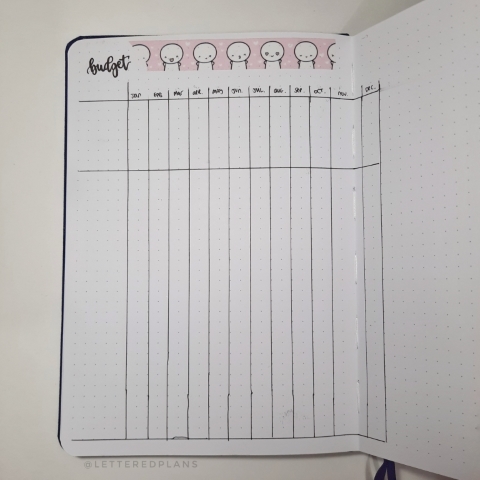 budget
JAN FEB MAR APR MAY JUN JUL AUG SEP OCT NOV DEC
@LETTEREDPLANS